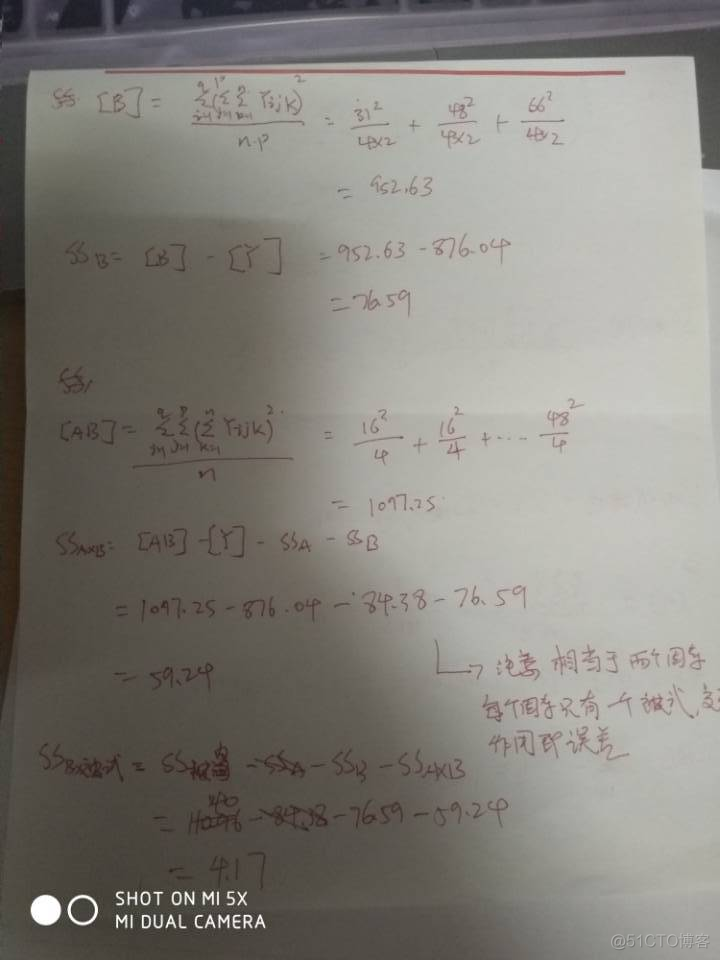 [B] = \frac{\sum_{j=1}^{q}(\sum_{i=1}^{p}\sum_{k=1}^{n} Y_{ijk})^2}{n \cdot p} = \frac{31^2}{4×2} + \frac{48^2}{4×2} + \frac{66^2}{4×2}
= 952.63
SS_B = [B] - [Y] = 952.63 - 876.04
= 76.59
[AB] = \frac{\sum\sum(\sum Y_{ijk})^2}{n} = \frac{16^2}{4} + \frac{16^2}{4} + ... \frac{48^2}{4}
= 1097.25
SS_{A×B} = [AB] - [Y] - SS_A - SS_B
= 1097.25 - 876.04 - 84.38 - 76.59
= 59.24
注意 相当于两个因素
每个因素只有一个被试,交
作用即误差
- SS_A - SS_B - SS_{A×B}
- 84.38 - 76.59 - 59.24
= 4.17
SHOT ON MI 5X
MI DUAL CAMERA
@51CTO博客